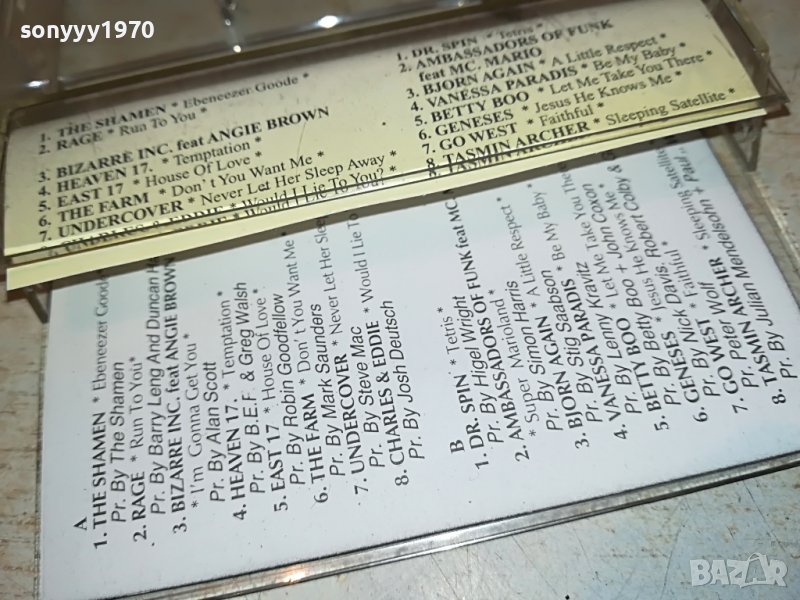 sonyyy1970
1. THE SHAMEN * Ebeneezer Goode *
2. RAGE * Run To You *
3. BIZARRE INC. feat ANGIE BROWN
4. HEAVEN 17. * Temptation *
5. EAST 17 * House Of Love *
6. THE FARM * Don't You Want Me *
7. UNDERCOVER * Never Let Her Sleep Away *
EDDIE * Would I Lie To You? *
1. DR. SPIN * Tetris *
2. AMBASSADORS OF FUNK
feat MC. MARIO
3. BJORN AGAIN * A Little Respect *
4. VANESSA PARADIS * Be My Baby *
5. BETTY BOO * Let Me Take You There *
6. GENESES * Jesus He Knows Me *
7. GO WEST * Faithful *
8. TASMIN ARCHER * Sleeping Satellite *
A
1. THE SHAMEN * Ebeneezer Goode *
Pr. By The Shamen
2. RAGE * Run To You *
Pr. By Barry Leng And Duncan
3. BIZARRE INC. feat ANGIE BROWN
* I'm Gonna Get You *
Pr. By Alan Scott
4. HEAVEN 17. * Temptation *
Pr. By B.E.F. & Greg Walsh
5. EAST 17 * House Of Love *
Pr. By Robin Goodfellow
6. THE FARM * Don't You Want Me *
Pr. By Mark Saunders
7. UNDERCOVER * Never Let Her Sleep
Pr. By Steve Mac
8. CHARLES & EDDIE * Would I Lie To
Pr. By Josh Deutsch
B
1. DR. SPIN * Tetris *
Pr. By Higel Wright
2. AMBASSADORS OF FUNK feat MC.
* Super Marioland *
Pr. By Simon Harris
3. BJORN AGAIN * A Little Respect *
Pr. By Stig Saabson
4. VANESSA PARADIS * Be My Baby *
Pr. By Lenny Kravitz
5. BETTY BOO * Let Me Take You
Pr. By Betty Boo + John Coxon
GENESES * Jesus He Knows Me
Pr. By Nick Davis, Robert Colby &
6. GO WEST * Faithful *
Pr. By Peter Wolf
7. TASMIN ARCHER * Sleeping
8. Pr. By Julian Mendelsohn + Paul
BAZAR